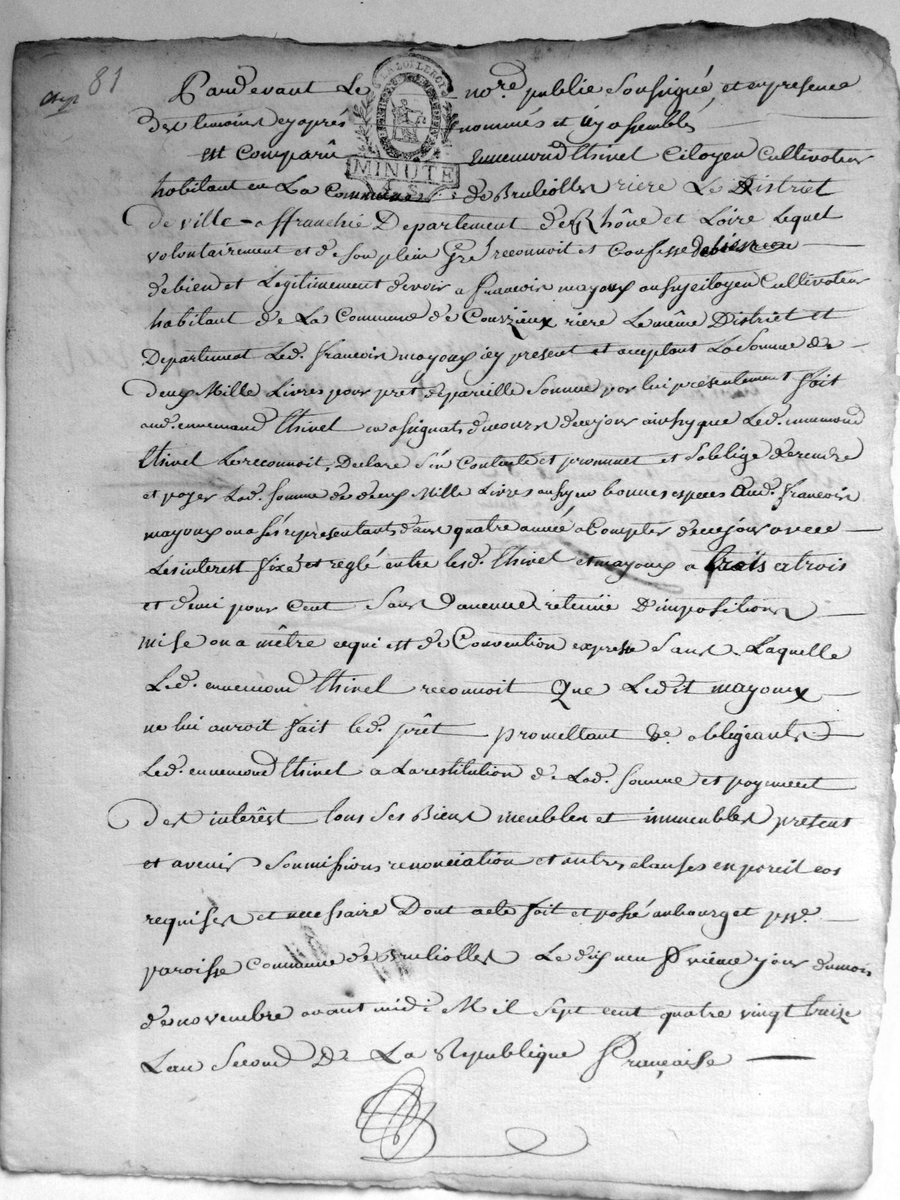 81
LA LOI LE ROI
MINUTE
4. S.
Pardevant Le no.re publie Soussigné, et en presence
des temoins cy après nommés et icy assemblés
est Comparû ennemond thivel Citoyen Cultivateur
habitant en La Commune de Brullioles riere Le District
de ville-affranchie Departement de Rhône et Loire Lequel
volontairement et de son plein Gré reconnoit et Confesse
de bien et Legitimement devoir a francois mayoux aussy citoyen Cultivateur
habitant de La Commune de Courzieux riere Le même District et
Departement Led. francois mayoux icy present et acceptant La Somme de
deux Mille Livres pour prêt de pareille Somme par lui presentement fait
aud. ennemond thivel en assignats du cours de ce jour ainsy que Led. ennemond
thivel Le reconnoit, Declare s'en Contente et prommet et s'oblige de rendre
et payer Lad. Somme de deux Mille Livres aussy en bonnes especes aud. francois
mayoux ou a ses representants dans quatre année a Compter de ce jour avec
Les interest fixé et reglé entre lesd. thivel et mayoux a trois
et demi pour Cent Sans d'aucune retenüe D'impositions
mise ou a mêtre ce qui est de Convention expresse Sans Laquelle
Led. ennemond thivel reconnoit Que Ledit mayoux
ne lui auroit fait led. prêt promettant &c. obligeants
Led. ennemond thivel a La restitution de Lad. Somme et payment
des interêst tous Ses Biens meubles et immeubles présent
et avenir Soumissions renonciation et autres clauses en pareil cas
requises et necessaire Dont acte fait et passé au bourg et
paroisse Commune de Brullioles Le dix neuvième jour du mois
de novembre avant midi Mil Sept cent quatre vingt treize
L'an Second De La Republique Française